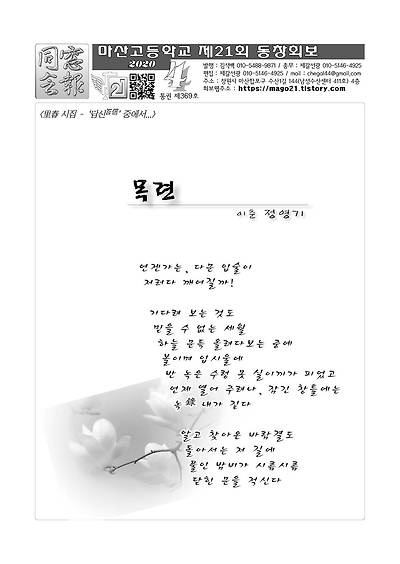 同窓会報
마산고등학교 제21회 동창회보
2020
4
통권 제369호
발행 : 김석백 010-5488-9871 / 총무 : 제갈선광 010-5146-4925
편집 : 제갈선광 010-5146-4925 / mail : chegal44@gmail.com
주소 : 창원시 마산합포구 수산1길 144(남성수산센터 411호) 4층
회보웹주소 : https://mago21.tistory.com
<里春 시집 - '답신 중에서...>
목련
이춘 정영기
언젠가는, 다문 입술이
저러다 깨어질까!
기다려 보는 것도
믿을 수 없는 세월
하늘 문득 올려다보는 공에
물이며 입시울에
반 녹은 수정 못 실이끼가 피었고
언제 열어 주려나, 잠긴 창틀에는
녹 내가 짙다
알고 찾아온 바람결도
돌아서는 저 길에
풀인 밤비가 시름시름
닫힌 문을 적신다